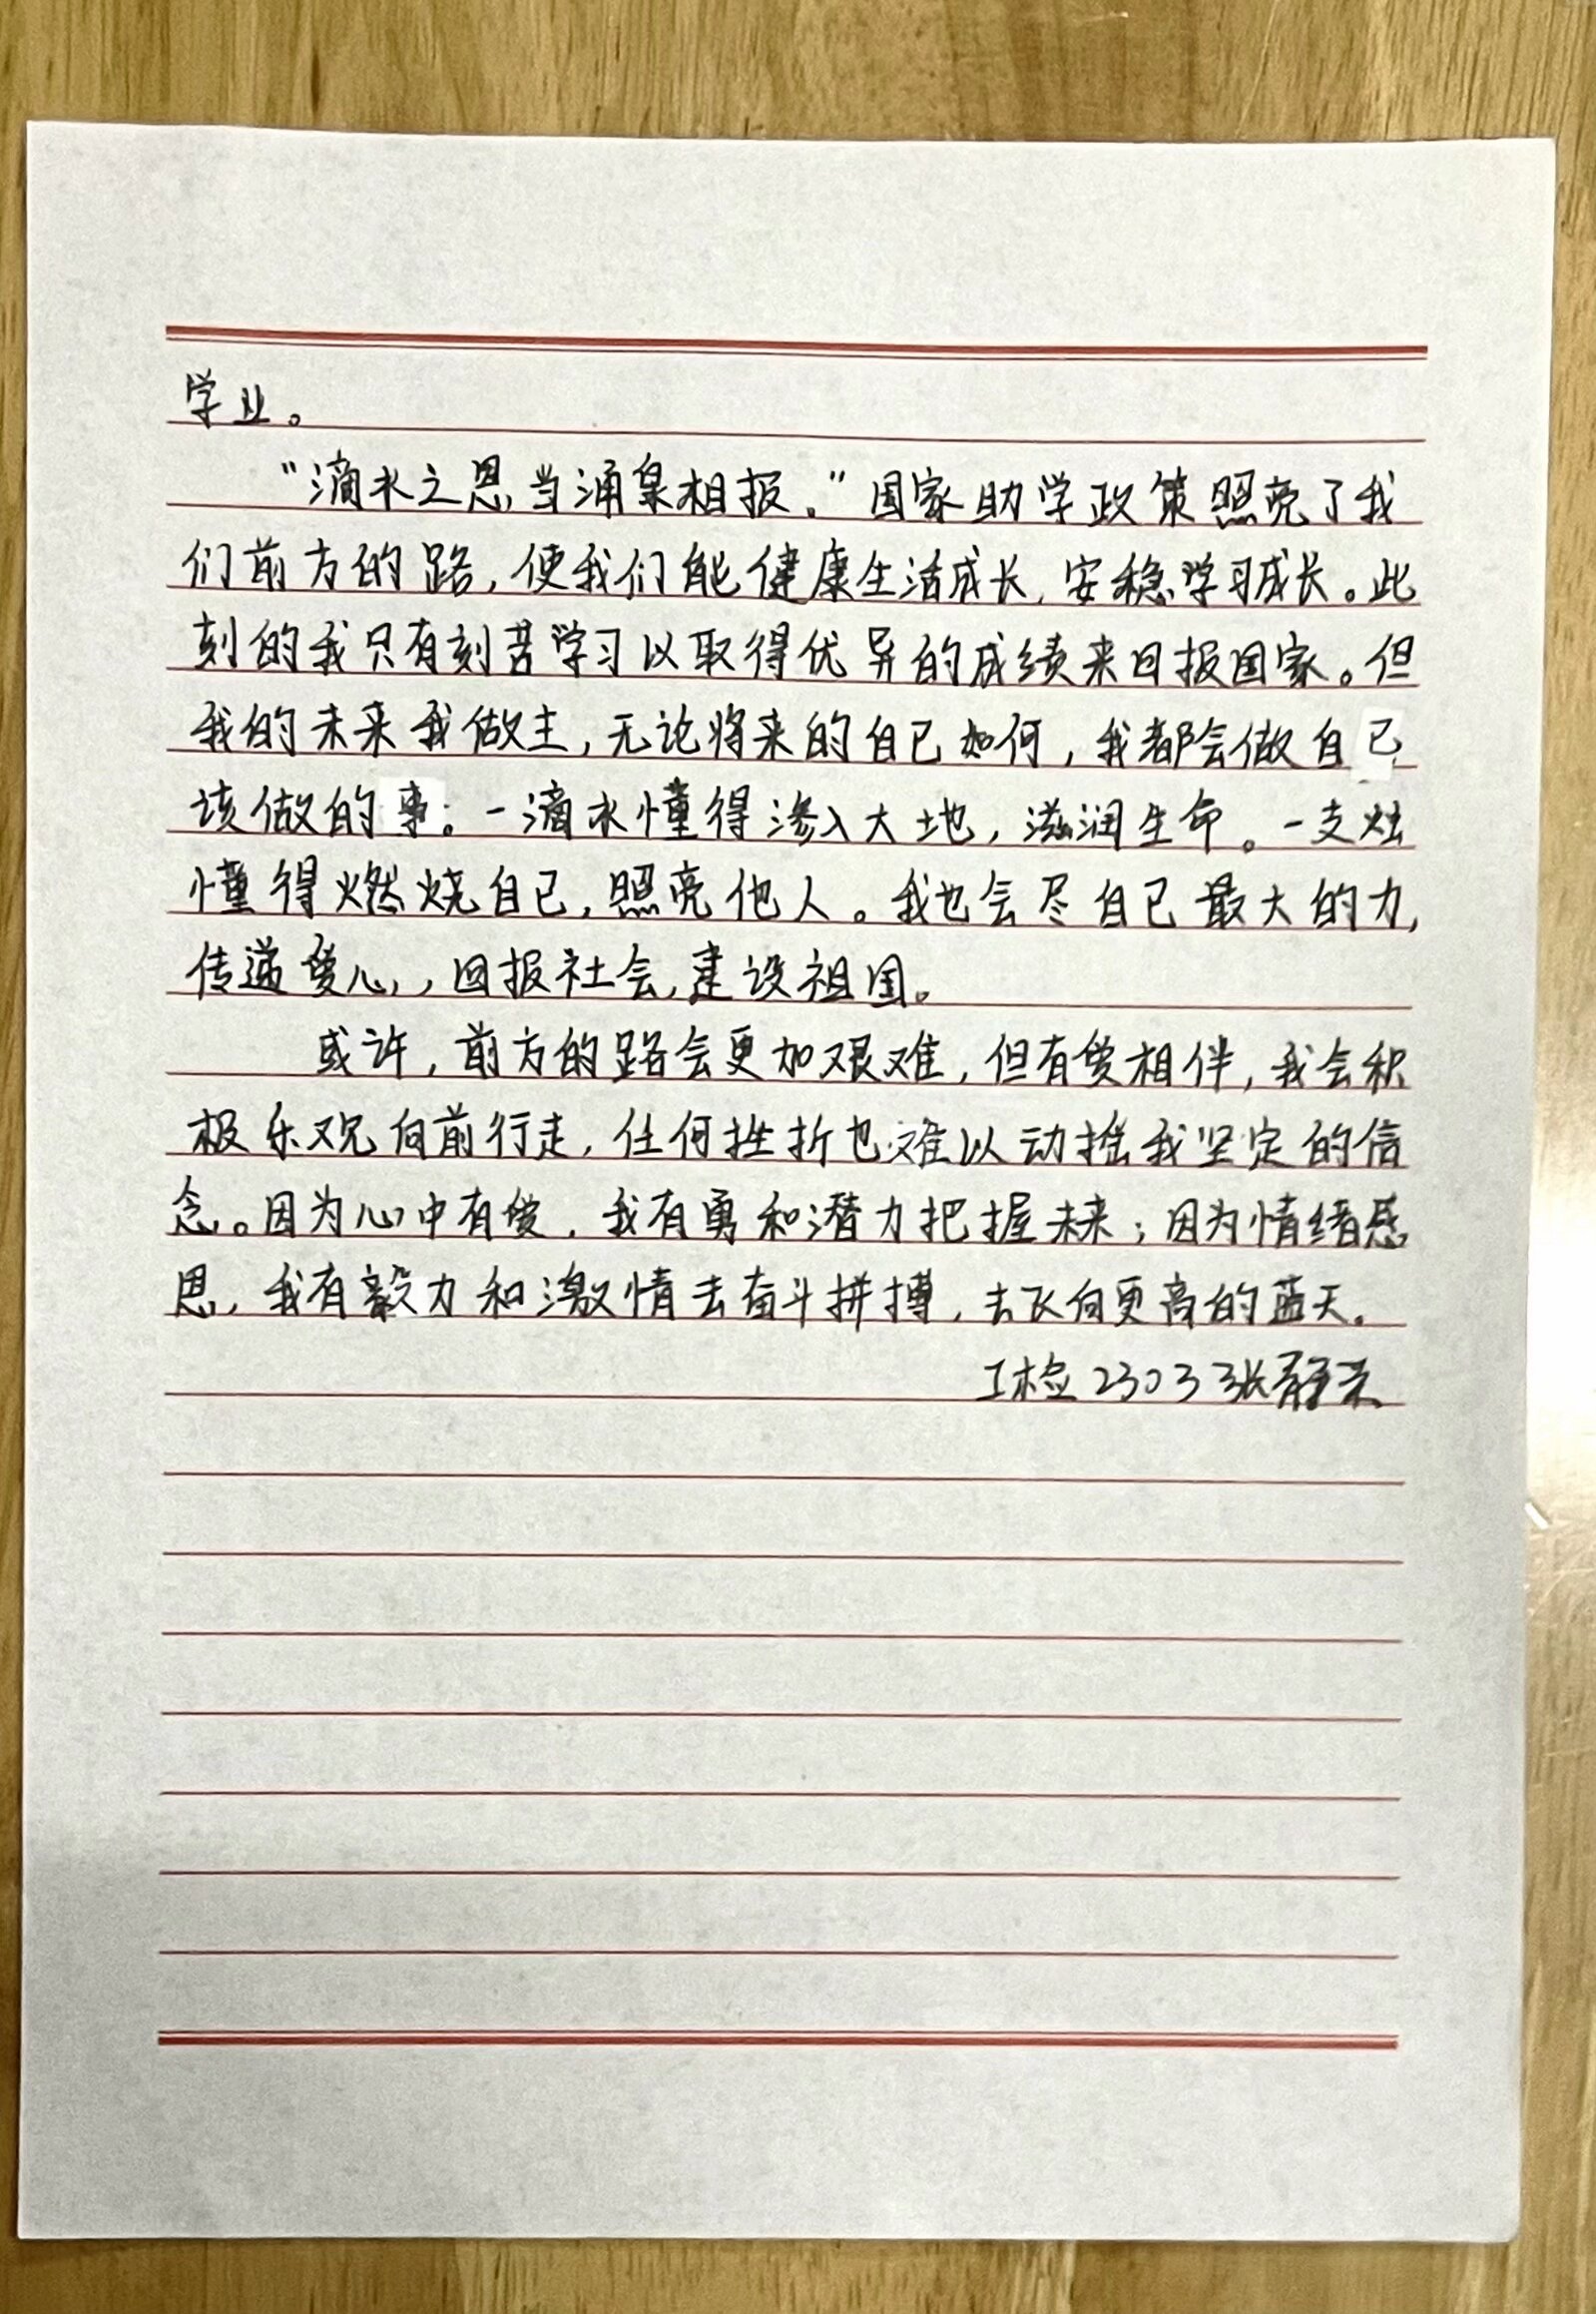 学业。
“滴水之恩,当涌泉相报。”国家助学政策照亮了我
们前方的路,使我们能健康生活成长,安稳学习成长。此
刻的我只有刻苦学习以取得优异的成绩来回报国家。但
我的未来我做主,无论将来的自己如何,我都会做自己
该做的事。一滴水懂得渗入大地,滋润生命。一支烛
懂得燃烧自己,照亮他人。我也会尽自己最大的力,
传递爱心,回报社会,建设祖国。
或许,前方的路会更加艰难,但有爱相伴,我会积
极乐观向前行走,任何挫折也难以动摇我坚定的信
念。因为心中有爱,我有勇和潜力把握未来;因为情绪感
恩,我有毅力和激情去奋斗拼搏,去飞向更高的蓝天。
工检2303 张静